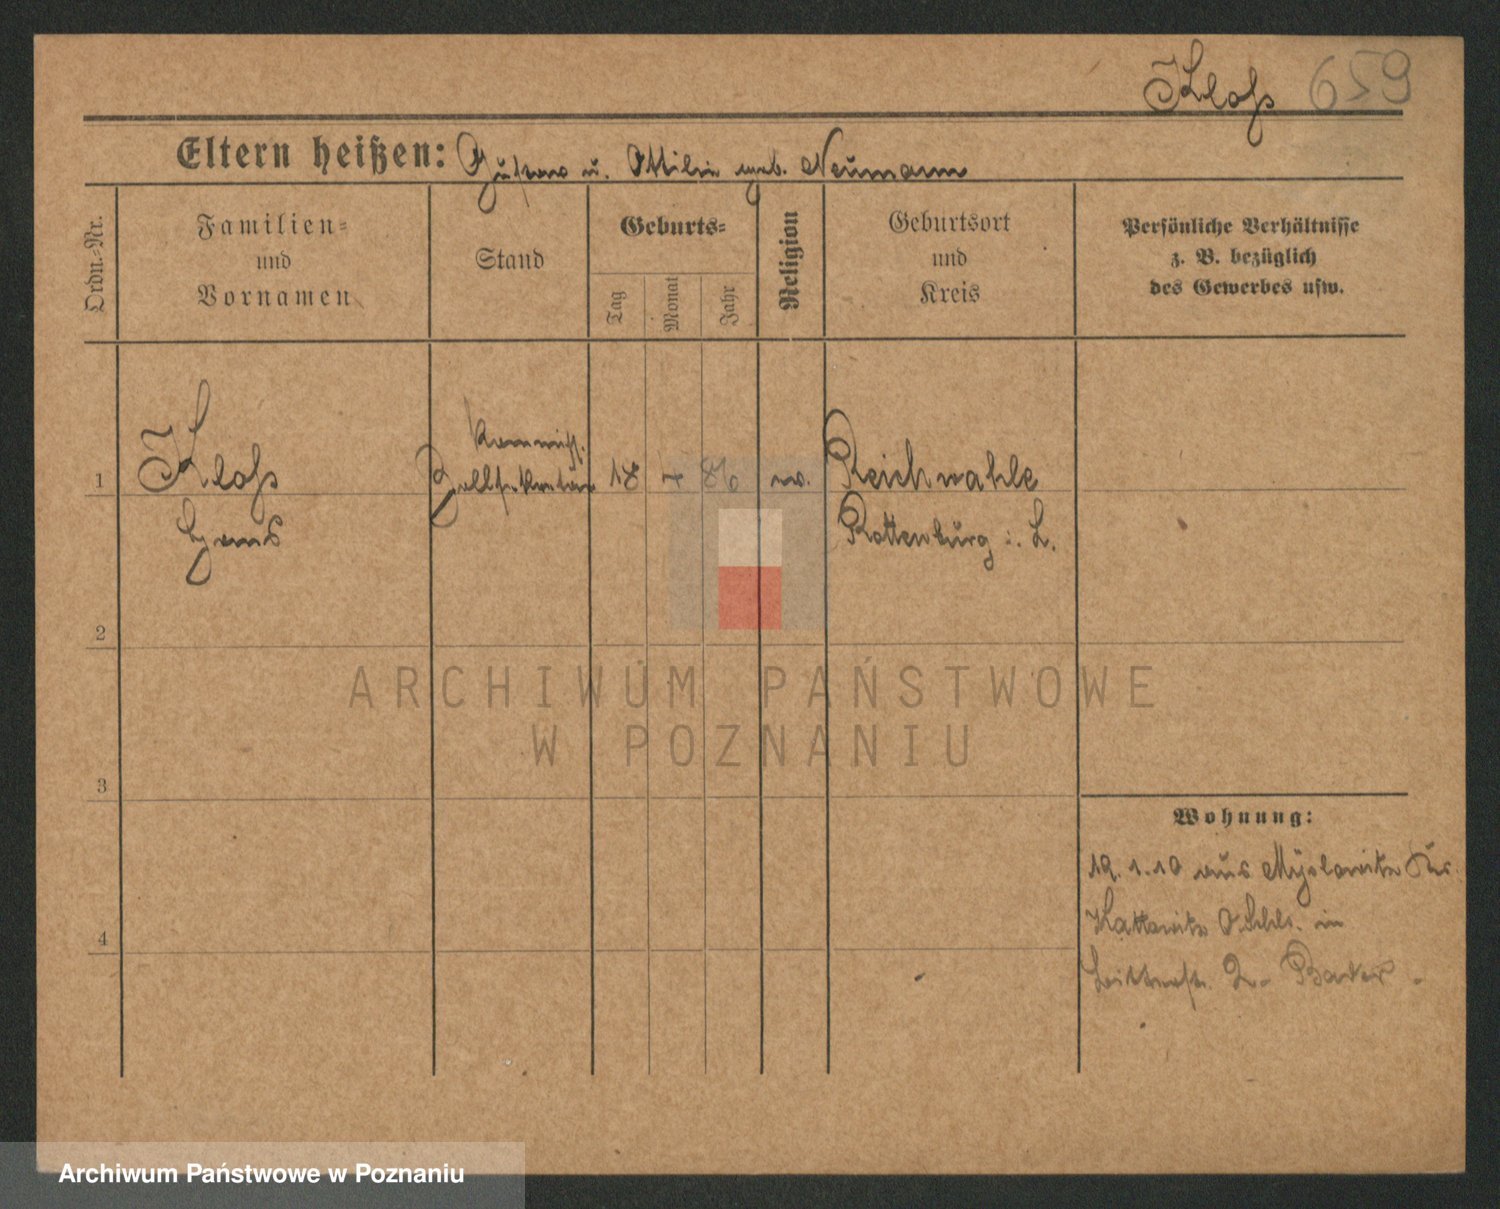 Kloß 659
Eltern heißen: Gustav u. Ottilie geb. Neumann
Ordn.-Nr.
Familien-
und
Vornamen
Stand
Geburts-
Tag
Monat
Jahr
Religion
Geburtsort
und
Kreis
Persönliche Verhältnisse
z. B. bezüglich
des Gewerbes usw.
1
Kloß
Hans
kommiss.
Zollsekretär
18
86
ev.
Reichwalde
Rottenburg i. L.
2
3
4
Wohnung:
12. 1. 10 aus Myslowitz Krs.
Kattowitz O.Schls. in
2
ARCHIWUM PAŃSTWOWE
W POZNANIU
Archiwum Państwowe w Poznaniu